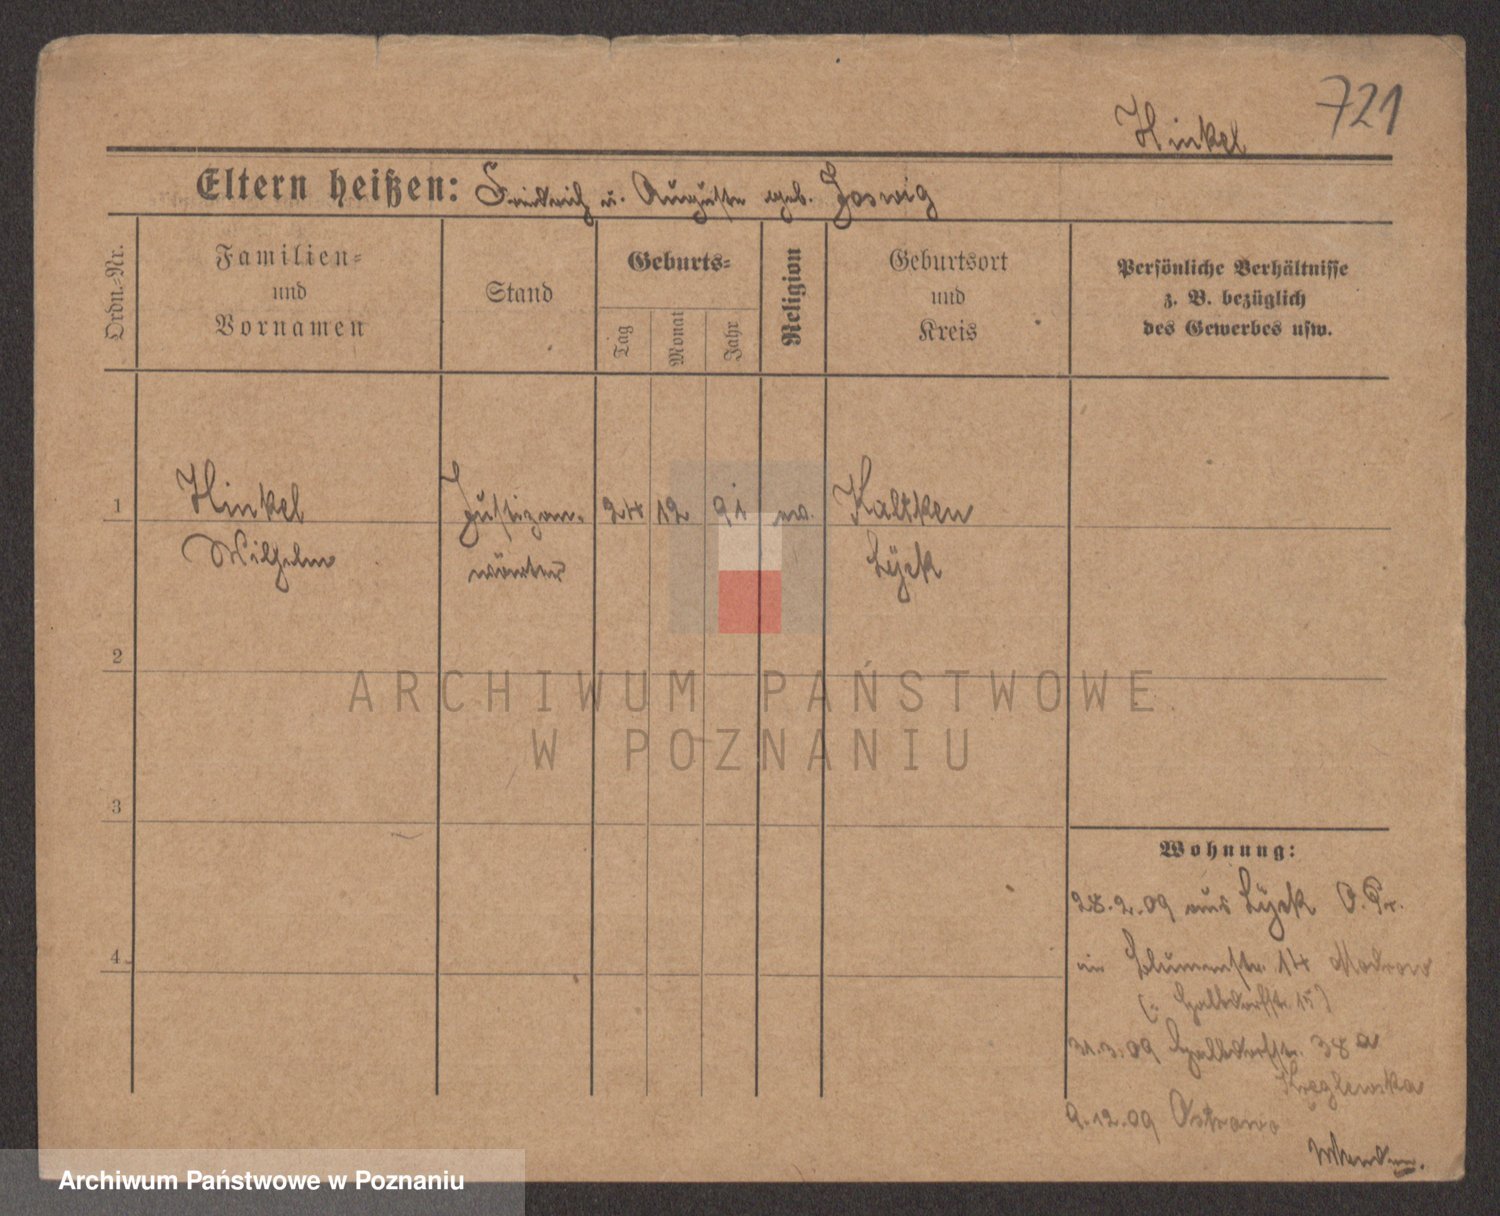 721
Hinkel
Eltern heißen: Friedrich u. Auguste geb. Joswig
Ordn.-Nr.
Familien- und Vornamen
Stand
Geburts-
Tag
Monat
Jahr
Religion
Geburtsort und Kreis
Persönliche Verhältnisse
z. B. bezüglich
des Gewerbes usw.
1 Hinkel Justizan- 24 12 91 ev. Kaltken
Wilhelm wärter Lyck
2
3
4
Wohnung:
28.2.09 aus Lyck O. Pr.
in Blumenstr. 14
31.3.09 38a
9.12.09 Ostrowo
Wenden.
ARCHIWUM PAŃSTWOWE
W POZNANIU
Archiwum Państwowe w Poznaniu